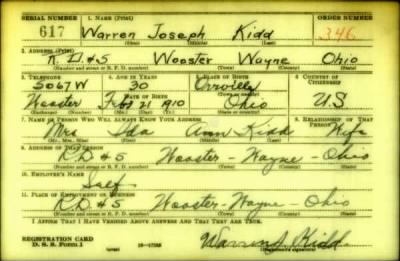 SERIAL NUMBER 1. NAME (Print) ORDER NUMBER
617 Warren Joseph Kidd 346
(First) (Middle) (Last)
2. ADDRESS (Print)
R.D #5 Wooster Wayne Ohio
(Number and street or R. F. D. number) (Town) (County) (State)
3. TELEPHONE 4. AGE IN YEARS 5. PLACE OF BIRTH 6. COUNTRY OF CITIZENSHIP
5067W 30 Orrville
DATE OF BIRTH (Town or county)
Wooster Feb 21 1910 Ohio U.S
(Exchange) (Mo.) (Day) (Yr.) (State or country)
7. NAME OF PERSON WHO WILL ALWAYS KNOW YOUR ADDRESS 8. RELATIONSHIP OF THAT PERSON
Mrs Ida Ann Kidd Wife
(Mr., Mrs., Miss) (First) (Middle) (Last)
9. ADDRESS OF THAT PERSON
R.D #5 Wooster - Wayne - Ohio
(Number and street or R. F. D. number) (Town) (County) (State)
10. EMPLOYER'S NAME
Self
11. PLACE OF EMPLOYMENT OR BUSINESS
R.D #5 Wooster-Wayne-Ohio
(Number and street or R. F. D. number) (Town) (County) (State)
I AFFIRM THAT I HAVE VERIFIED ABOVE ANSWERS AND THAT THEY ARE TRUE.
REGISTRATION CARD
D. S. S. Form 1 (over) Warren J. Kidd
(Registrant's signature)